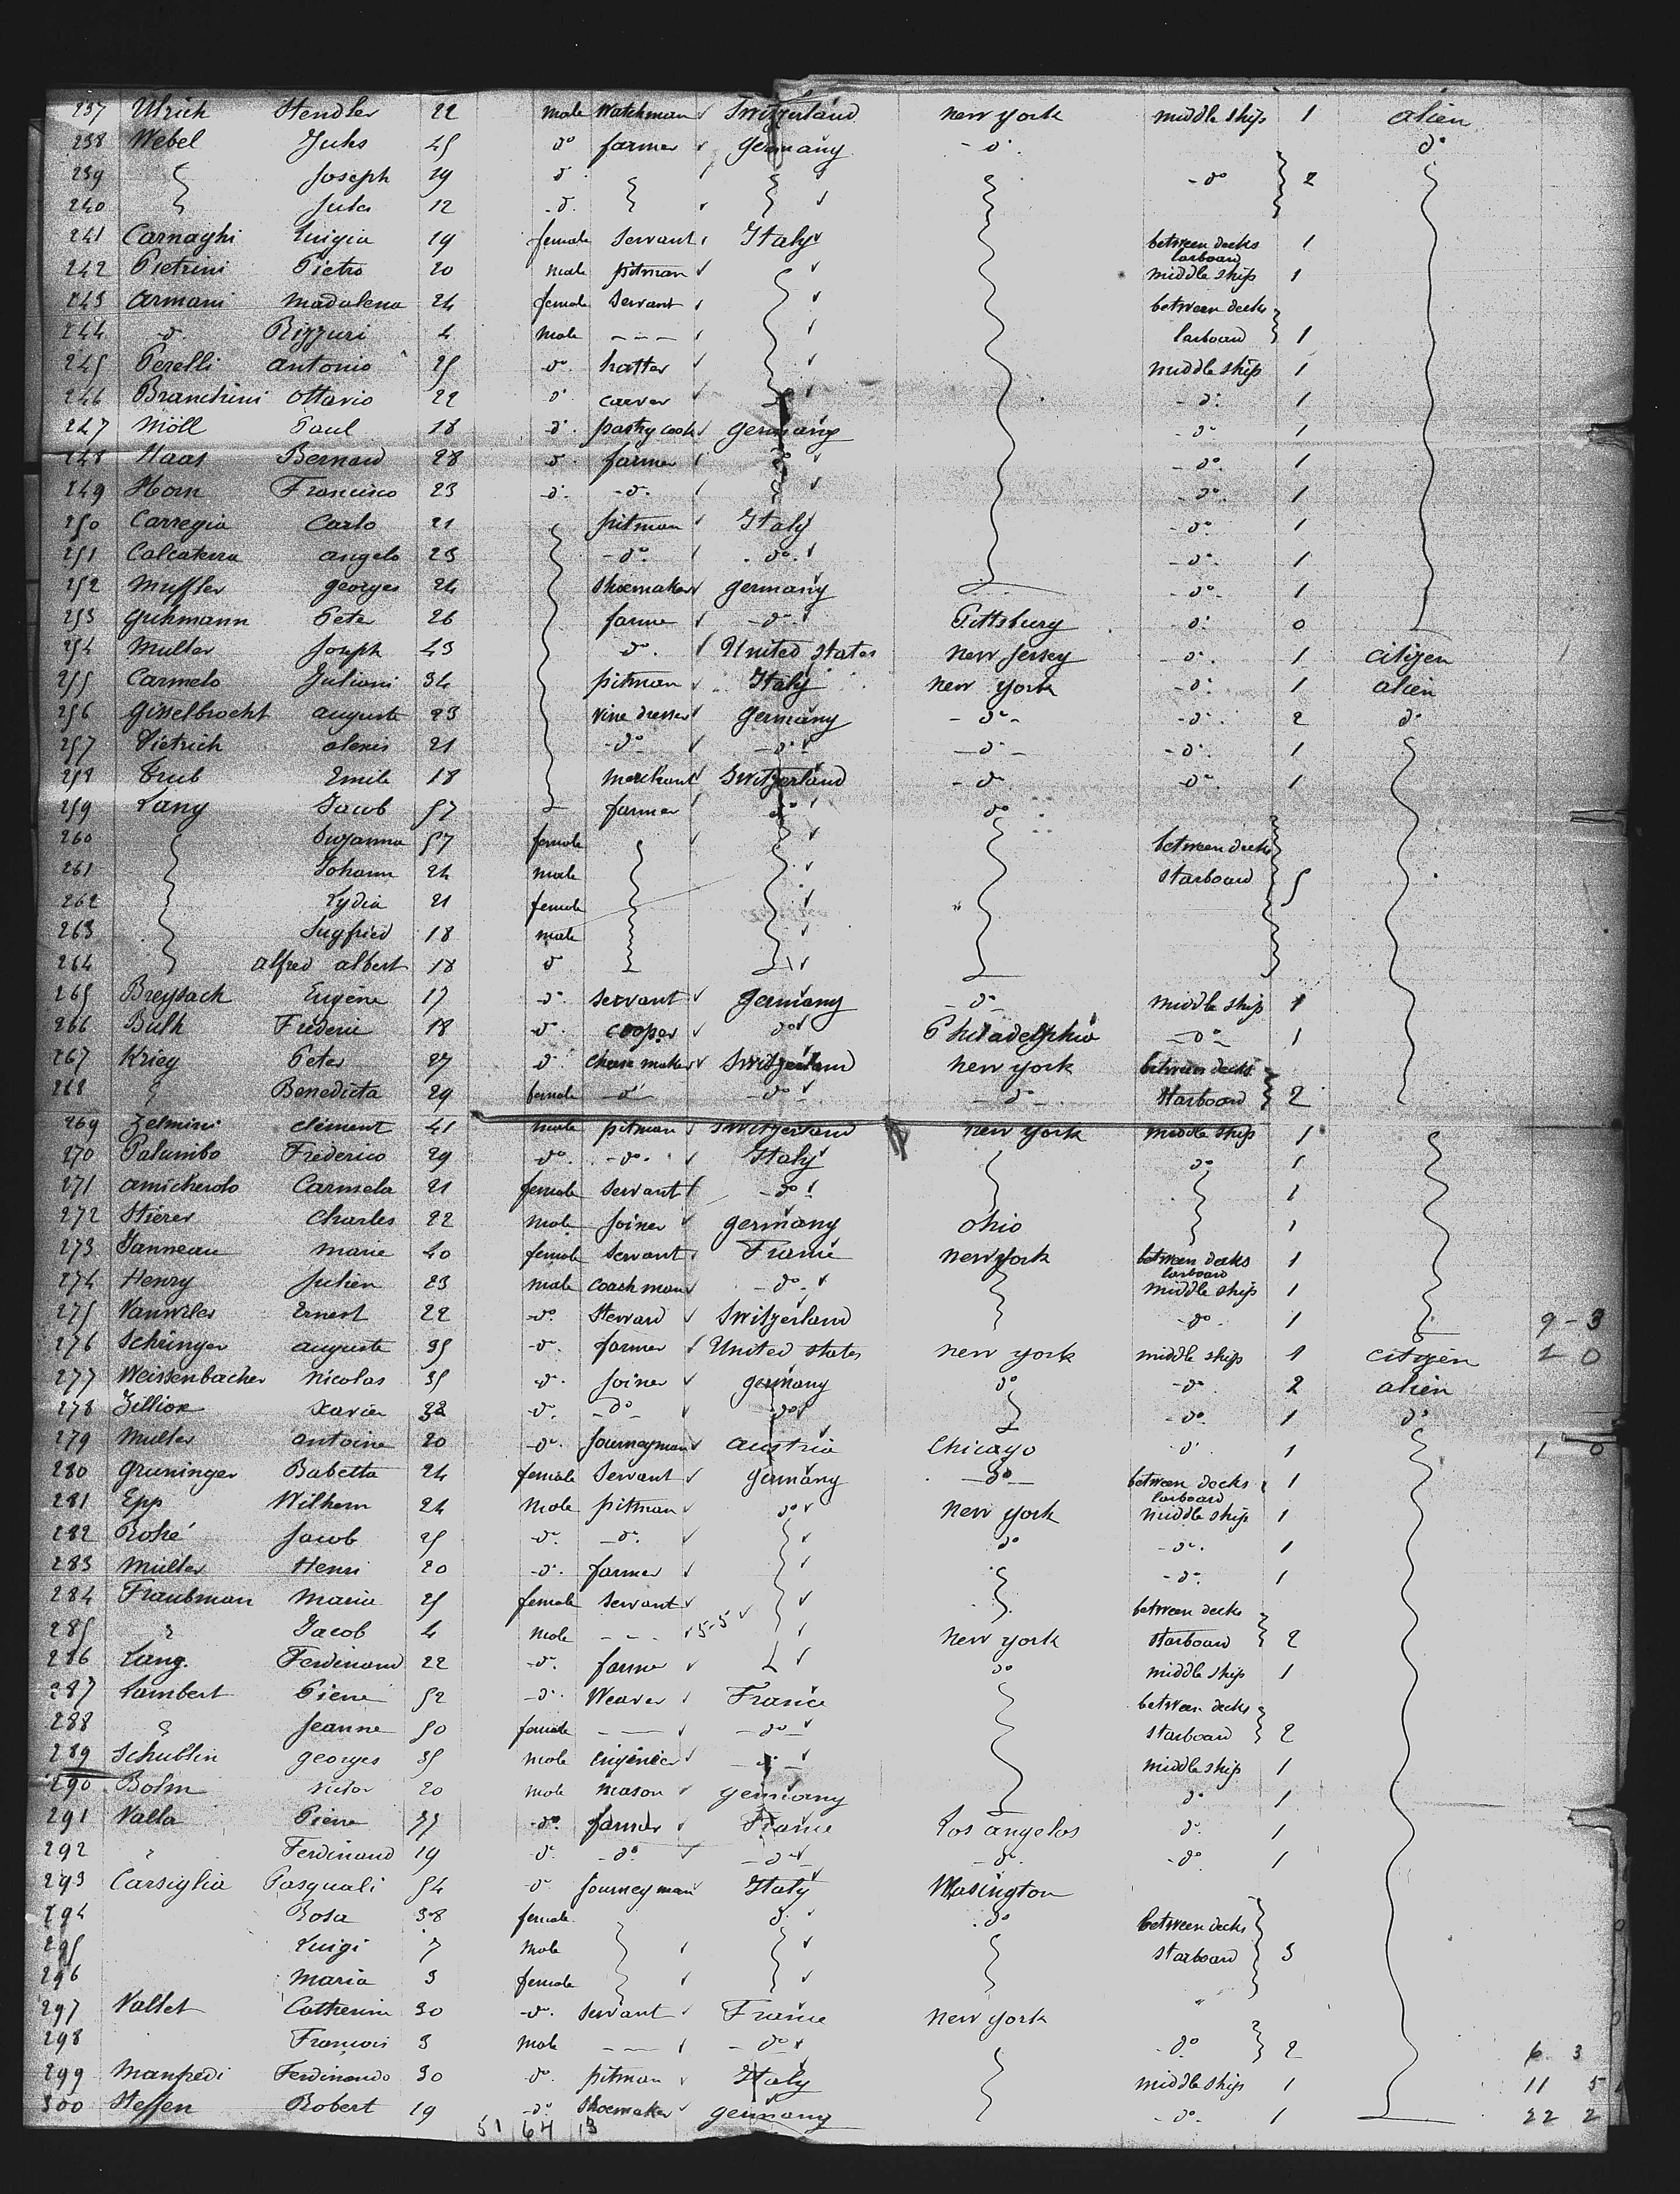 237 Ulrich Hendler 22 male Watchman Switzerland new york middle ship 1 alien
238 Webel Juhs 45 do farmer germany - do do
239 Joseph 19 do - do 2
240 Jules 12 do
241 Carnaghi Luigia 19 female Servant Italy between decks larboard 1
242 Pietrini Pietro 20 male pitman middle ship 1
243 Armani madalena 24 female Servant between decks
244 do Rizzuri 4 male - - - larboard 1
245 Perelli antonio 25 do hatter middle ship 1
246 Branchini ottavio 22 do carver - do 1
247 Möll Paul 18 do pastry cook germany - do 1
248 Haas Bernard 28 do farmer do - do 1
249 Horn Francisco 23 do - do - do 1
250 Carregia Carlo 21 pitman Italy - do 1
251 Calcaterra angelo 23 - do - do - do 1
252 Muffler georges 24 Shoemaker germany - do 1
253 guhmann Peter 26 farme - do Pittsburg - do 0
254 Muller Joseph 43 do United States new Jersey - do 1 citizen
255 Carmelo Juliani 34 pitman Italy new york - do 1 alien
256 Gisselbrecht auguste 23 vine dresser germany - do - - do 2 do
257 Dietrich alexis 21 - do - do - do - - do 1
258 Trub Emile 18 merchant Switzerland - do - do 1
259 Lany Jacob 57 farmer do do
260 Suzanna 57 female between decks
261 Johann 24 male starboard 5
262 Lydia 21 female
263 Sugfried 18 male
264 alfred albert 18 do
265 Breysach Eugène 17 do servant germany - do middle ship 1
266 Bulh Frederic 18 do cooper do Philadelphia - do - 1
267 Krieg Peter 27 do cheese maker Switzerland new york between decks
268 Benedicta 29 female - do - do - do - Starboard 2
269 Zelmini clément 41 male pitman Switzerland new york middle ship 1
270 Palumbo Frederico 29 do - do Italy do 1
271 amicherolo Carmela 21 female Servant - do 1
272 Stierer Charles 22 male Joiner germany ohio 1
273 Janneau marie 40 female Servant France new york between decks larboard 1
274 Henry Julien 23 male coachman - do middle ship 1
275 Vanwiler Ernest 22 do Steward Switzerland - do 1 9 - 3
276 Schringer auguste 35 do farmer United States new york middle ship 1 citizen 1 0
277 Weissenbacher nicolas 35 do Joiner germany do - do 2 alien
278 Zilliox Xavier 32 do - do - do - do 1 do
279 Muller antoine 20 do Journeyman austria Chicago do 1 1 0
280 gruninger Babetta 24 female Servant germany - do - between decks larboard 1
281 Epp Wilhem 24 male pitman do new york middle ship 1
282 Rohé Jacob 25 do - do do - do 1
283 Muller Henri 20 do farmer - do 1
284 Traubman Maria 25 female Servant between decks
285 Jacob 4 male - - - 5-5 new york Starboard 2
286 Lang. Ferdinand 22 do farme do middle ship 1
287 Lambert Pierre 52 do Weaver France between decks
288 Jeanne 50 female - - - do - starboard 2
289 Schublin georges 35 male engénier - do - middle ship 1
290 Bohn victor 20 male mason germany do 1
291 Valla Pierre 37 do farmer France Los angelos do 1
292 Ferdinand 19 do - do - do - do - do 1
293 Carsiglia Pasquali 54 do Journeyman Italy Wasington
294 Rosa 38 female do do between decks
295 Luigi 7 male starboard 3
296 Maria 3 female
297 Vallet Catherine 30 do servant France new york
298 François 3 male - - - - do - do 2 6 3
299 Manfredi Ferdinando 30 do pitman Italy middle ship 1 11 5
300 Steffen Robert 19 do Shoemaker germany - do 1 22 2
51 64 13